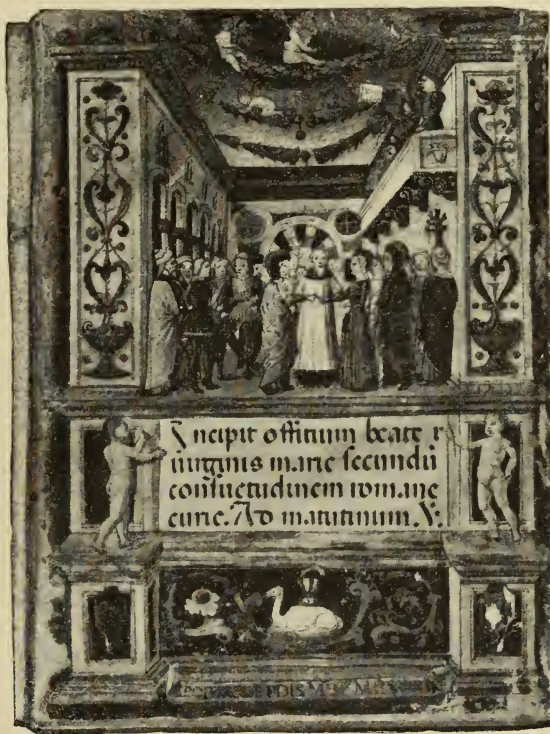 Incipit offitium beate
uirginis marie secundũ
consuetudinem romane
curie. Ad matutinum. V.